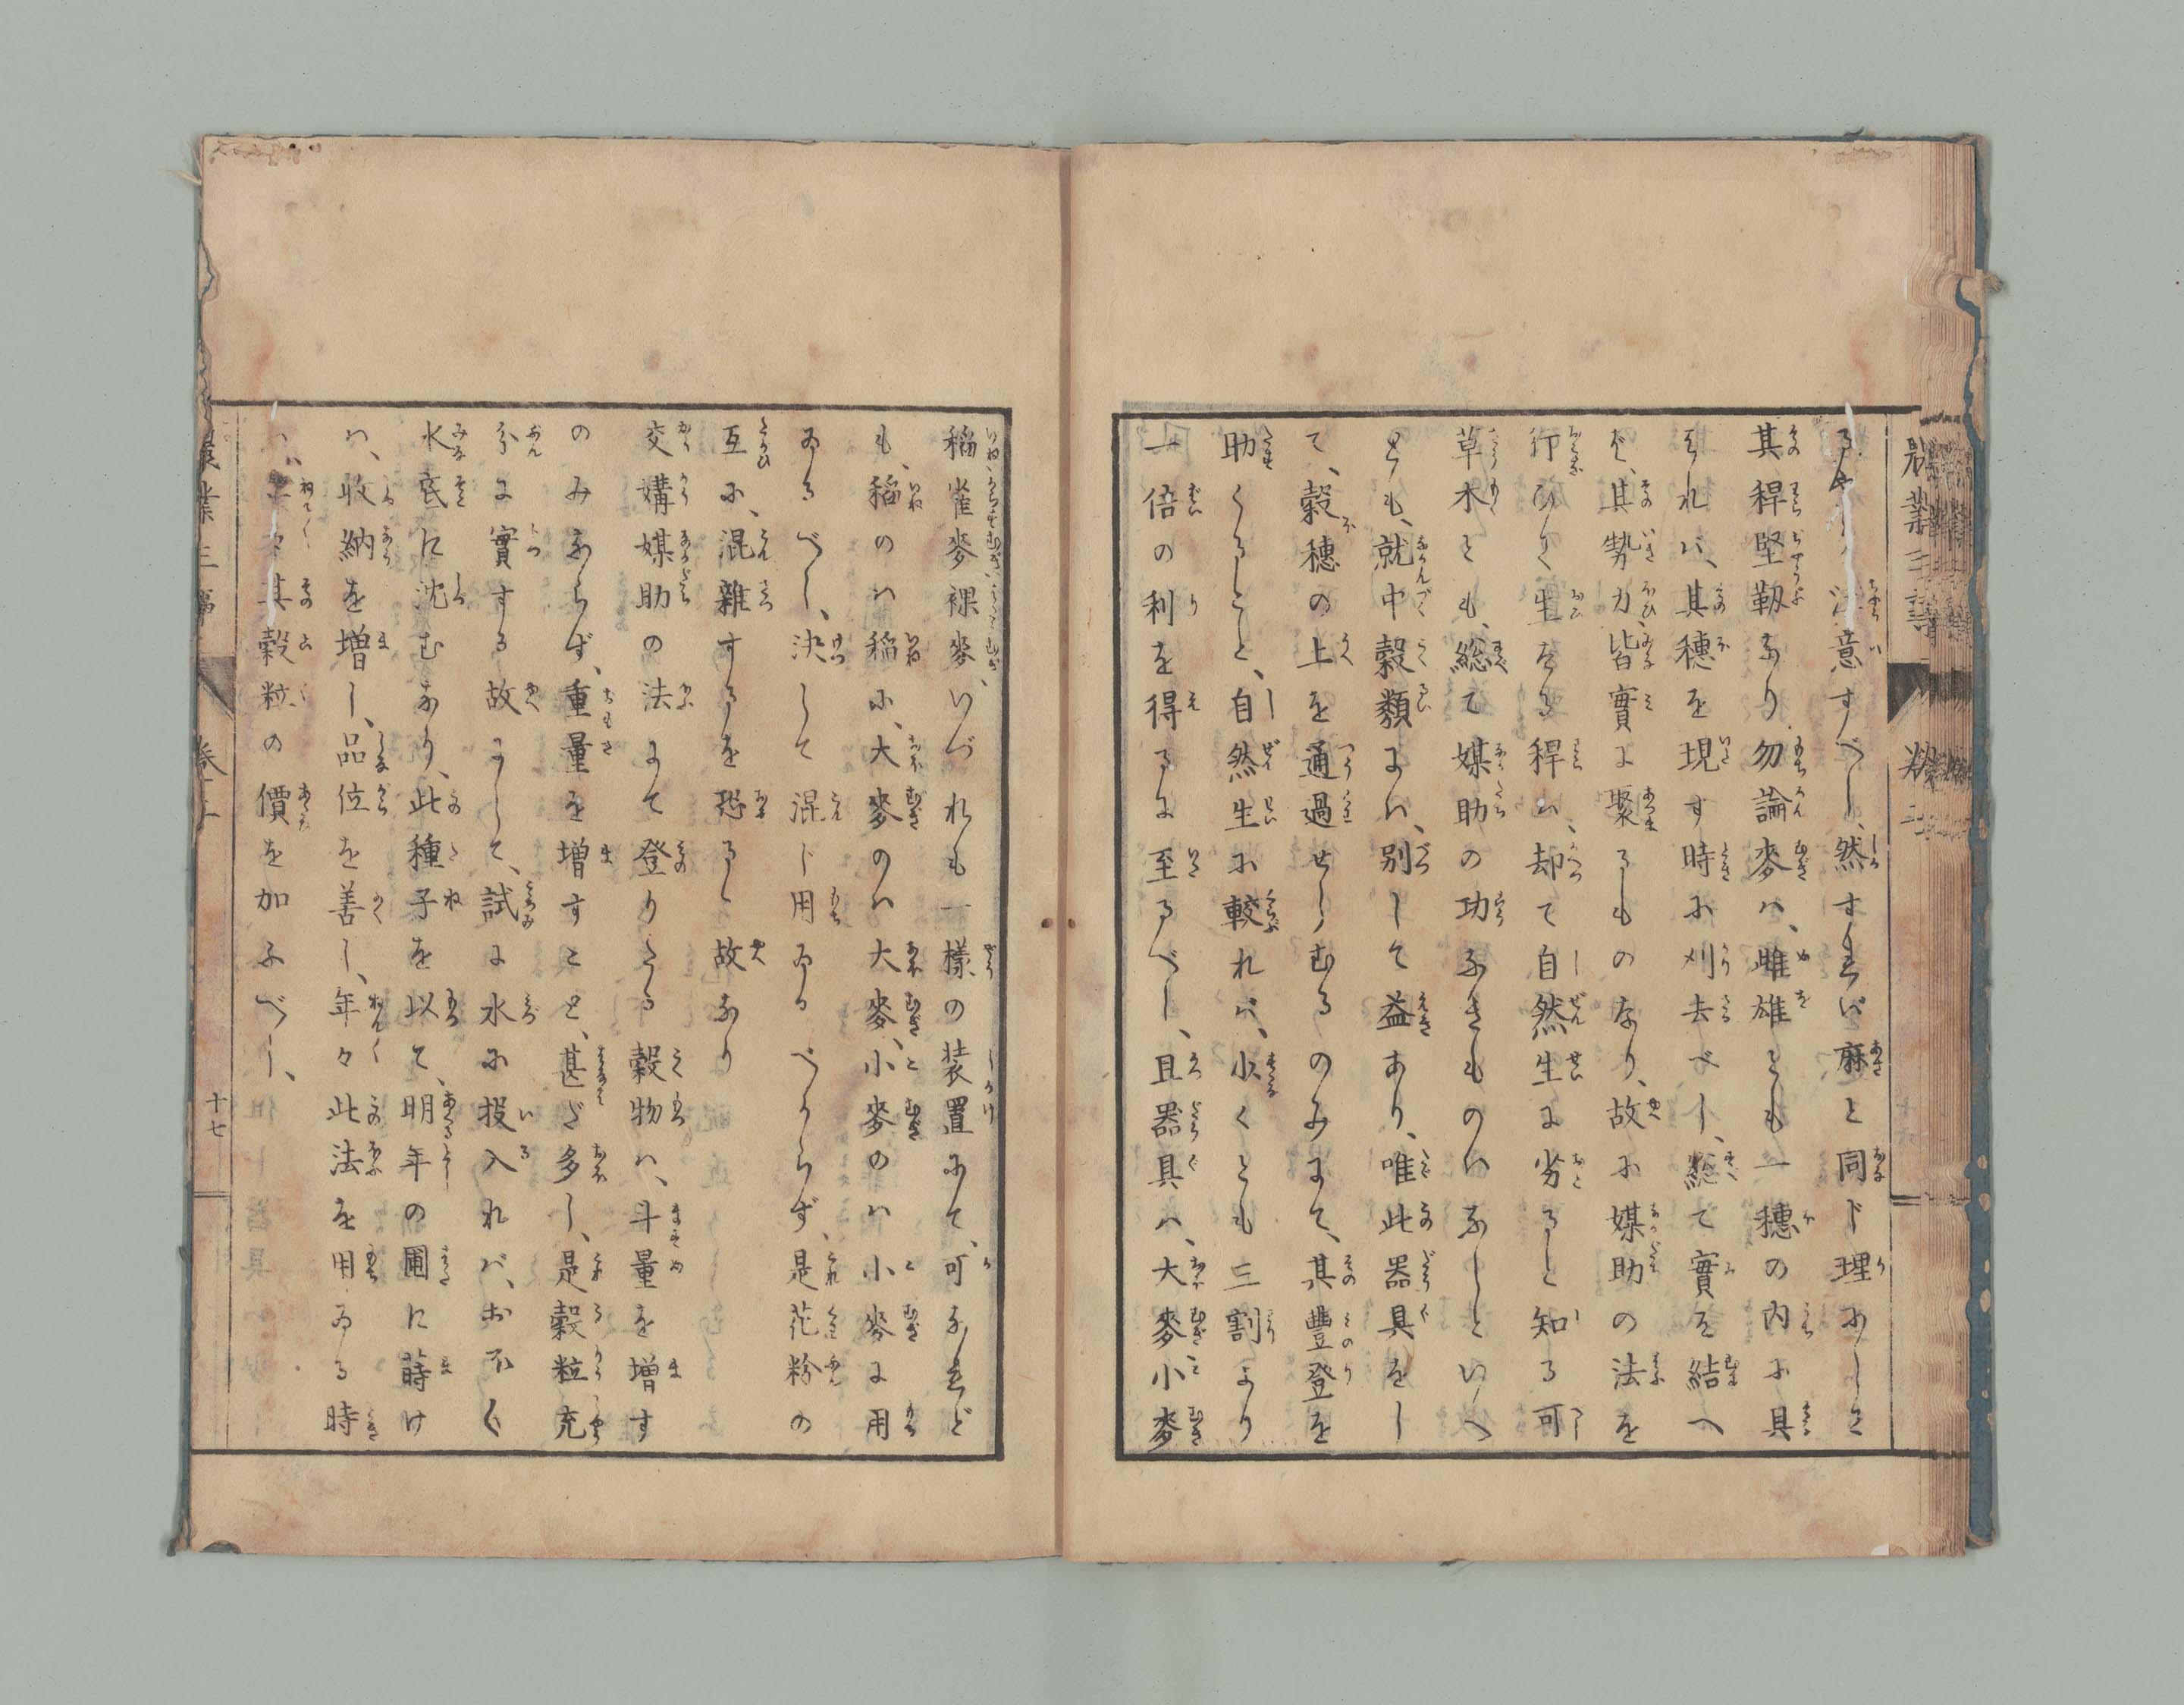 意すべし、然すれば麻と同じ理にして
其稈堅靱なり勿論麥ハ、雌雄とも一穗の内に具
それバ、其穗を現す時に刈去べし、総て實を結へ
ば、其勢力皆實に聚るものなり、故に媒助の法を
行ひて生たる稈ハ、却て自然生に劣ると知る可
草木とも、総て媒助の功なきものハなしといへ
とも、就中穀類にハ、別して益あり、唯此器具をし
て、穀穗の上を通過せしむるのみにて、其豐登を
助くること、自然生に較れバ、少くとも三割より
一倍の利を得るに至るべし、且器具ハ、大麥小麥
稲雀麥裸麥、いづれも一様の装置にて、可なれど
も、稲のハ稲に、大麥のハ大麥、小麥のハ小麥に用
ゐるべし、決して混じ用ゐるべからず、是花粉の
互に、混雜するを恐るゝ故なり
交媾媒助の法にて登りたる穀物ハ、斗量を増す
のみならず、重量を増すこと、甚だ多し、是穀粒充
分に實する故にして、試に水に投入れバ、おほく
水底に沈むなり、此種子を以て、明年の圃に蒔け
ハ、收納を増し、品位を善し、年々此法を用ゐる時
其穀粒の價を加ふべし、
農業三事 巻上 十七